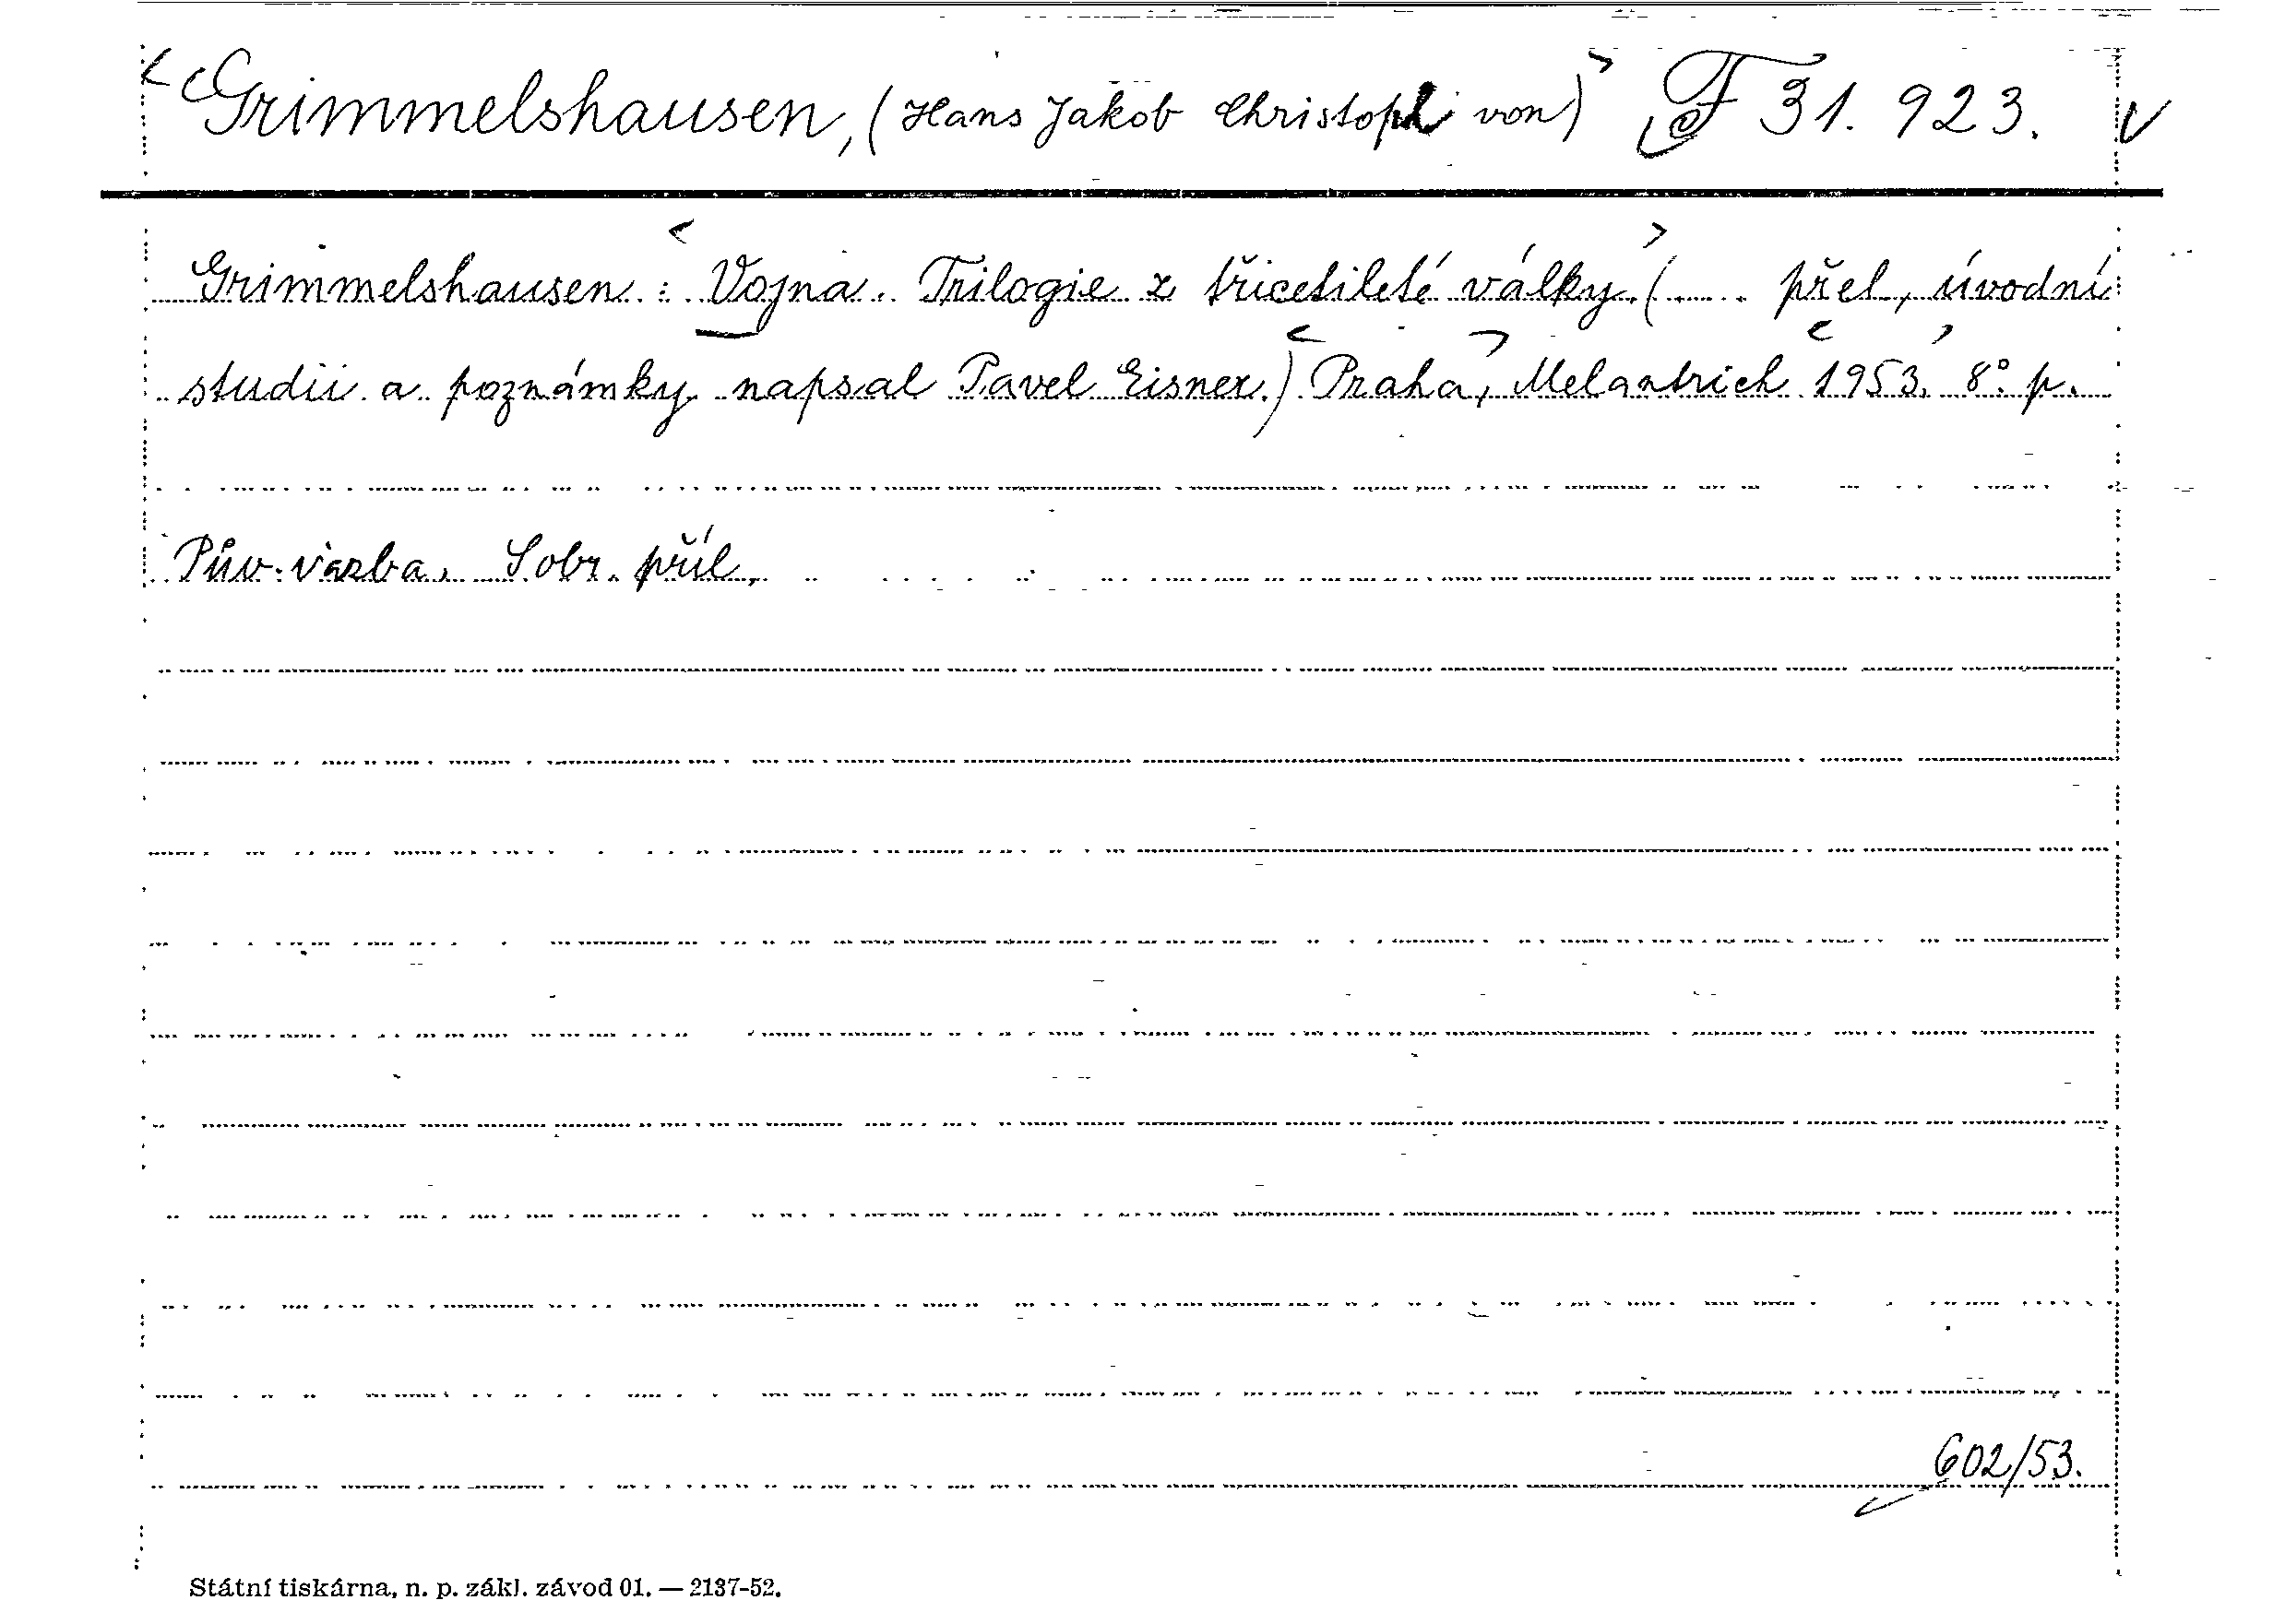 Grimmelshausen, (Hans Jakob Christoph von) F 31.923. v
Grimmelshausen: Vojna. Trilogie z třicetileté války. (... přel., úvodní
studii a poznámky napsal Pavel Eisner.) Praha, Melantrich 1953. 8° p.
Pův. vazba. Sobr. příl.
602/53.
Státní tiskárna, n. p. zákl. závod 01. — 2137-52.